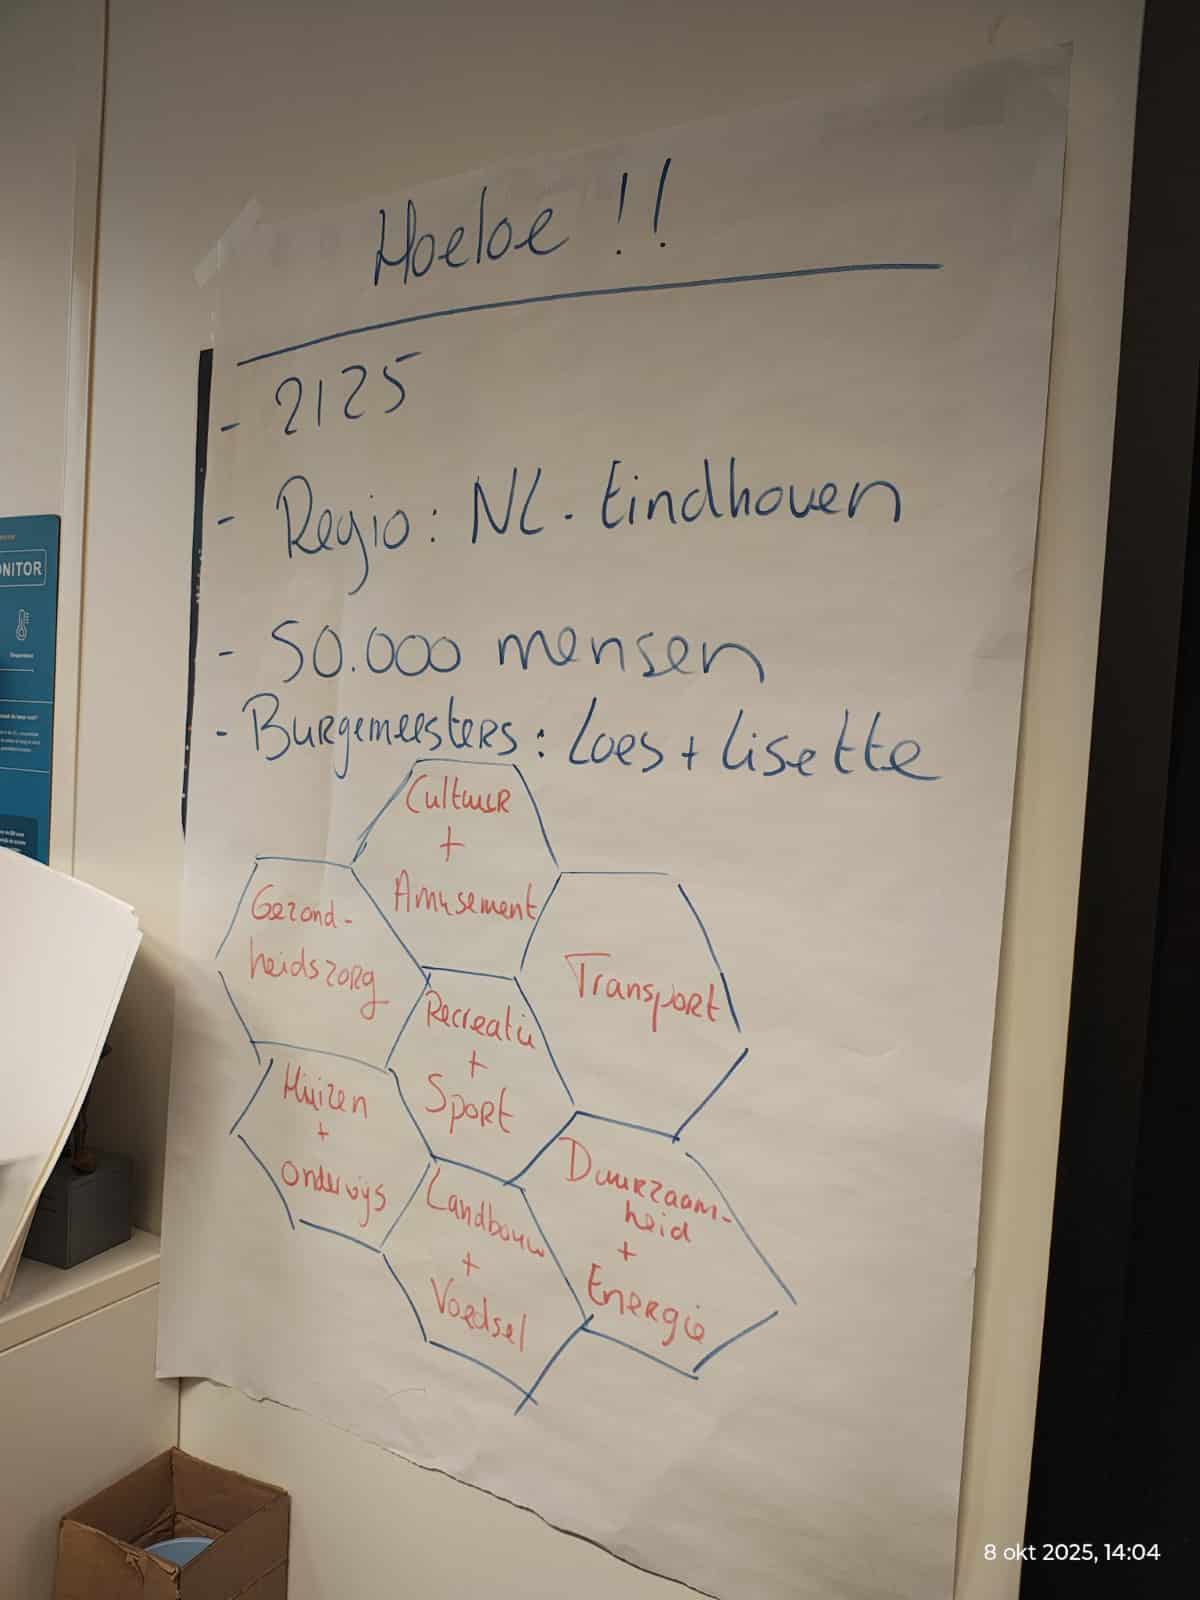 Hoeloe !!
- 2125
- Regio: NL. Eindhoven
- 50.000 mensen
- Burgemeesters: Loes + Lisette
Cultuur
+
Amusement
Gezond-
heidszorg
Transport
Recreatie
+
Sport
Huizen
+
Onderwijs
Landbouw
+
Voedsel
Duurzaam-
heid
+
Energie
ONITOR
8 okt 2025, 14:04